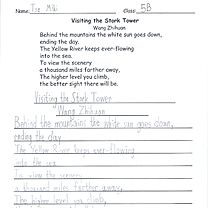 Name: Tse Miki Class: 5B
Visiting the Stork Tower
Wang Zhihuan
Behind the mountains the white sun goes down,
ending the day.
The Yellow River keeps ever-flowing
into the sea.
To view the scenery
a thousand miles farther away,
The higher level you climb,
the better sight there will be.
Visiting the Stork Tower
Wang Zhihuan
Behind the mountains the white sun goes down,
ending the day
The Yellow River keeps ever-flowing
into the sea.
To view the scenery
a thousand miles farther away,
The higher level you climb,